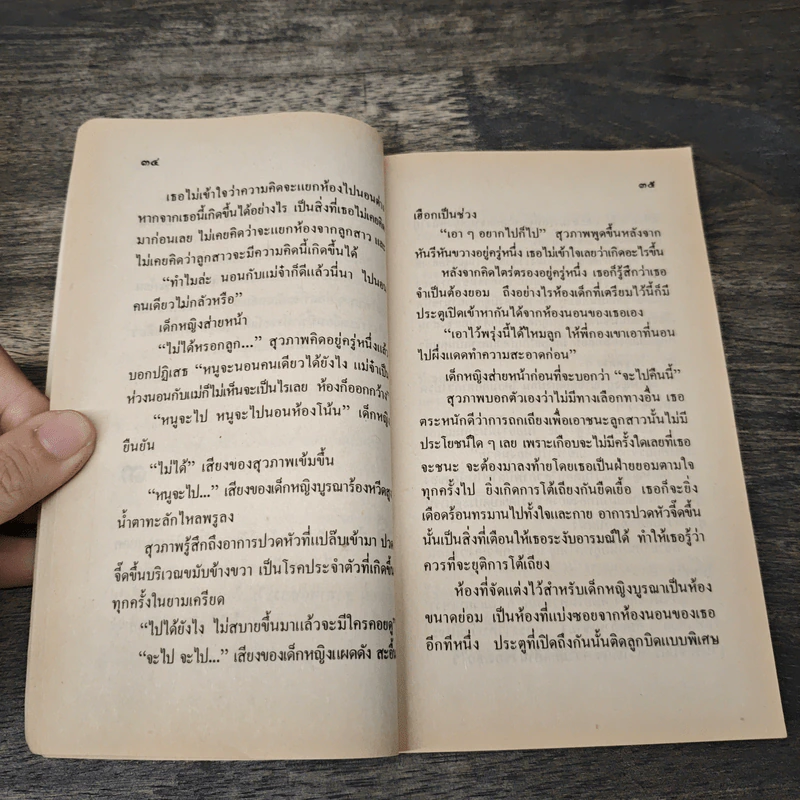 ๓๔
เธอไม่เข้าใจว่าความคิดจะแยกห้องไปนอนต่าง
หากจากเธอนี้เกิดขึ้นได้อย่างไร เป็นสิ่งที่เธอไม่เคยคิด
มาก่อนเลย ไม่เคยคิดว่าจะแยกห้องจากลูกสาว และ
ไม่เคยคิดว่าลูกสาวจะมีความคิดนี้เกิดขึ้นได้
“ทำไมล่ะ นอนกับแม่จ๋าก็ดีแล้วนี่นา ไปนอน
คนเดียวไม่กลัวหรือ”
เด็กหญิงส่ายหน้า
“ไม่ได้หรอกลูก...” สุวภาพคิดอยู่ครู่หนึ่งแล้ว
บอกปฏิเสธ “หนูจะนอนคนเดียวได้ยังไง แม่จ๋าเป็น
ห่วงนอนกับแม่ก็ไม่เห็นจะเป็นไรเลย ห้องก็ออกกว้าง”
“หนูจะไป หนูจะไปนอนห้องโน้น” เด็กหญิง
ยืนยัน
“ไม่ได้” เสียงของสุวภาพเข้มขึ้น
“หนูจะไป...” เสียงของเด็กหญิงบูรณาร้องหวีด
น้ำตาทะลักไหลพรูลง
สุวภาพรู้สึกถึงอาการปวดหัวที่แปล๊บเข้ามา ปวด
จี๊ดขึ้นบริเวณขมับข้างขวา เป็นโรคประจำตัวที่เกิดขึ้น
ทุกครั้งในยามเครียด
“ไปได้ยังไง ไม่สบายขึ้นมาแล้วจะมีใครคอยดู”
“จะไป จะไป...” เสียงของเด็กหญิงแผดดัง สะอื้น
๓๕
เฮือกเป็นช่วง
“เอา ๆ อยากไปก็ไป” สุวภาพพูดขึ้นหลังจาก
หันรีหันขวางอยู่ครู่หนึ่ง เธอไม่เข้าใจเลยว่าเกิดอะไรขึ้น
หลังจากคิดไตร่ตรองอยู่ครู่หนึ่ง เธอก็รู้สึกว่าเธอ
จำเป็นต้องยอม ถึงอย่างไรห้องเด็กที่เตรียมไว้นี้ก็มี
ประตูเปิดเข้าหากันได้จากห้องนอนของเธอเอง
“เอาไว้พรุ่งนี้ได้ไหมลูก ให้พี่กองเขาเอาที่นอน
ไปผึ่งแดดทำความสะอาดก่อน”
เด็กหญิงส่ายหน้าก่อนที่จะบอกว่า “จะไปคืนนี้”
สุวภาพบอกตัวเองว่าไม่มีทางเลือกทางอื่น เธอ
ตระหนักดีว่าการถกเถียงเพื่อเอาชนะลูกสาวนั้นไม่มี
ประโยชน์ใด ๆ เลย เพราะเกือบจะไม่มีครั้งใดเลยที่เธอ
จะชนะ จะต้องมาลงท้ายโดยเธอเป็นฝ่ายยอมตามใจ
ทุกครั้งไป ยิ่งเกิดการโต้เถียงกันยืดเยื้อ เธอก็จะยิ่ง
เดือดร้อนทรมานไปทั้งใจและกาย อาการปวดหัวจี๊ดขึ้น
นั้นเป็นสิ่งที่เตือนให้เธอระงับอารมณ์ได้ ทำให้เธอรู้ว่า
ควรที่จะยุติการโต้เถียง
ห้องที่จัดแต่งไว้สำหรับเด็กหญิงบูรณาเป็นห้อง
ขนาดย่อม เป็นห้องที่แบ่งซอยจากห้องนอนของเธอ
อีกทีหนึ่ง ประตูที่เปิดถึงกันนั้นติดลูกบิดแบบพิเศษ